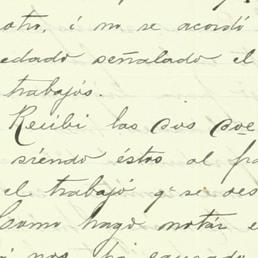 otro, i no se acordó
edado señalado el
trabajos.
Recibi las dos
siendo éstos al
el trabajó q. se des
Como hago notár e